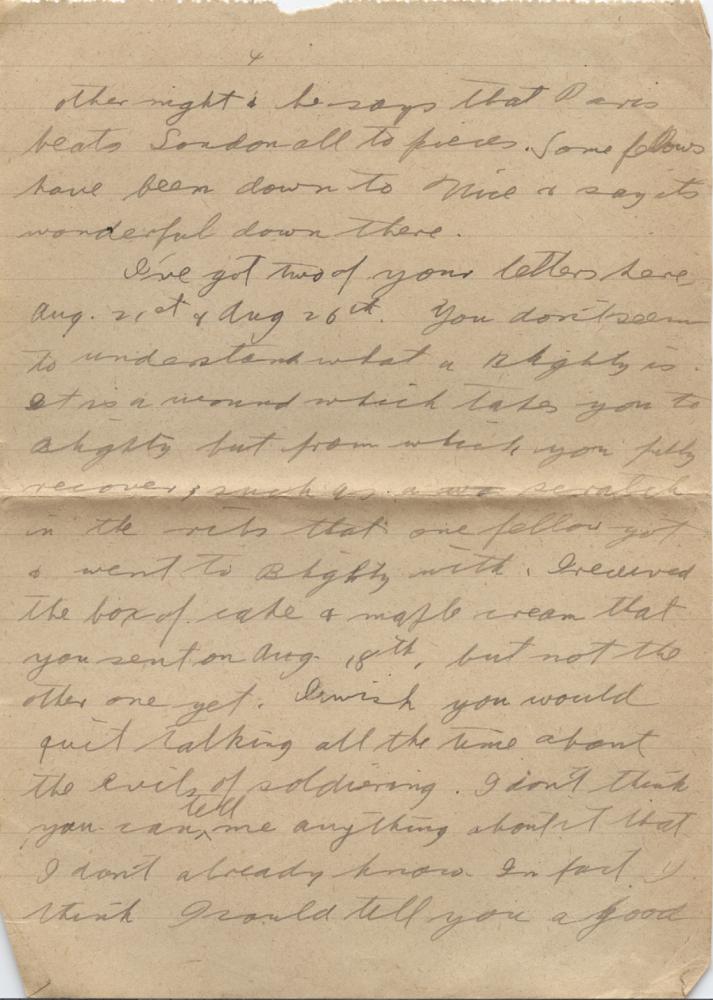 4
other night & he says that Paris
beats London all to pieces. Some fellows
have been down to Nice & say its
wonderful down there.
I've got two of your letters here,
Aug. 21st & Aug 26th. You don't seem
to understand what a Blighty is.
It is a wound which takes you to
Blighty but from which you fully
recover, such as a scratch
in the ribs that one fellow got
& went to Blighty with. I received
the box of cake & maple cream that
you sent on Aug. 18th, but not the
other one yet. I wish you would
quit talking all the time about
the evils of soldiering. I don't think
you can tell me anything about it that
I don't already know. In fact I
think I could tell you a good